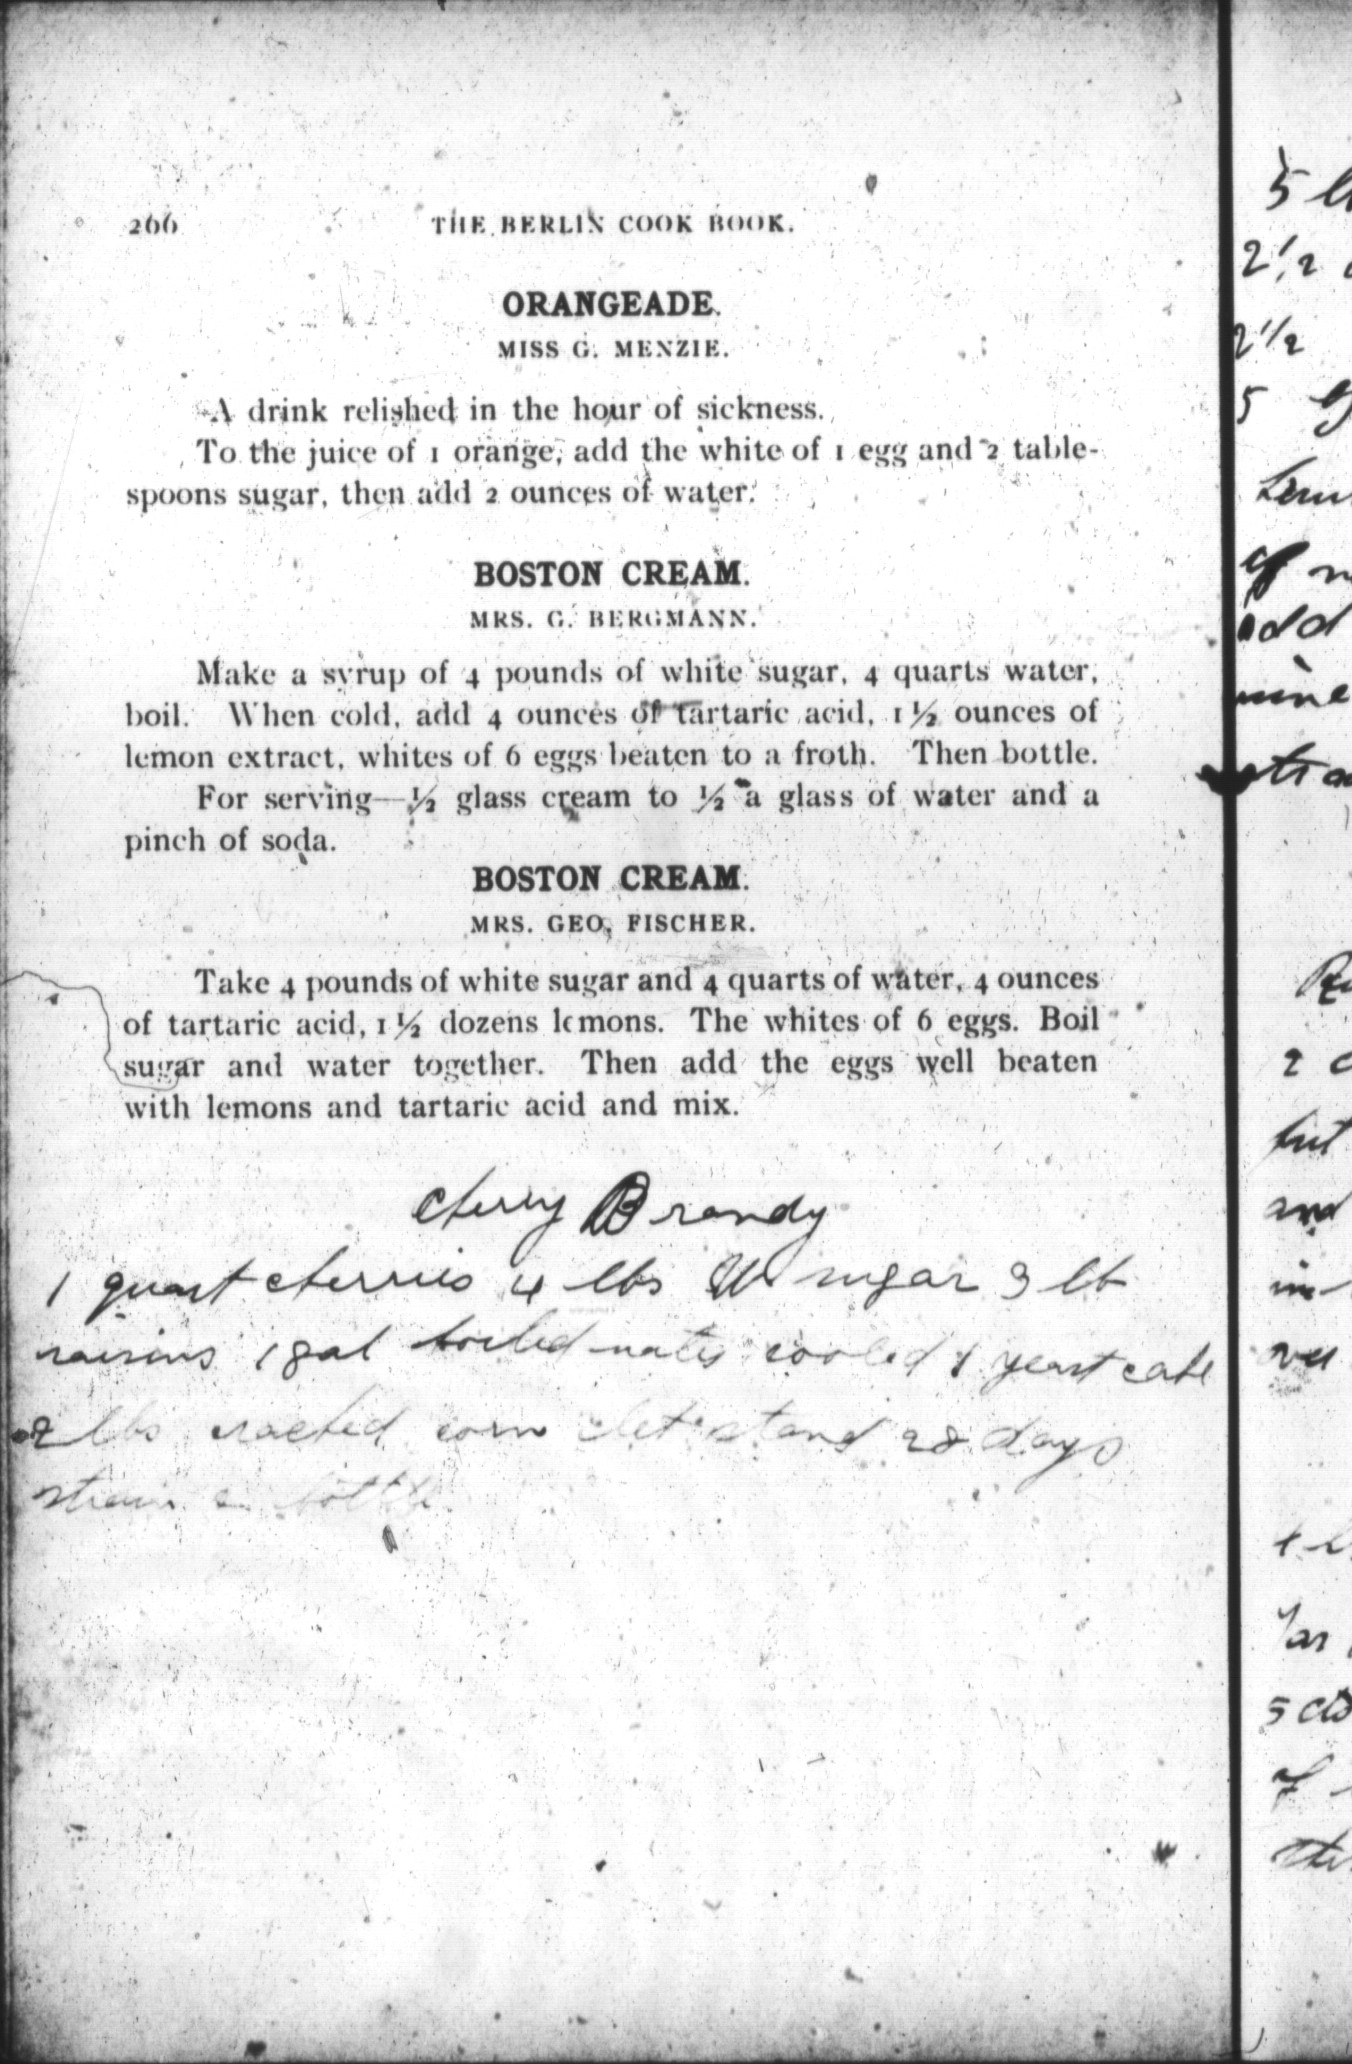 266 THE BERLIN COOK BOOK.
ORANGEADE.
MISS G. MENZIE.
A drink relished in the hour of sickness.
To the juice of 1 orange, add the white of 1 egg and 2 table-
spoons sugar, then add 2 ounces of water.
BOSTON CREAM.
MRS. G. BERGMANN.
Make a syrup of 4 pounds of white sugar, 4 quarts water,
boil. When cold, add 4 ounces of tartaric acid, 1½ ounces of
lemon extract, whites of 6 eggs beaten to a froth. Then bottle.
For serving—½ glass cream to ½ a glass of water and a
pinch of soda.
BOSTON CREAM.
MRS. GEO. FISCHER.
Take 4 pounds of white sugar and 4 quarts of water, 4 ounces
of tartaric acid, 1½ dozens lemons. The whites of 6 eggs. Boil
sugar and water together. Then add the eggs well beaten
with lemons and tartaric acid and mix.
Cherry Brandy
1 quart cherries 4 lbs sugar 3 lb
raisins 1 gal boiled water cooled 1 yeast cake
2 lbs cracked corn let stand 28 days
strain & bottle
5
2½
2½
5
of
add
wine
2
but
and
in
5 cts
of